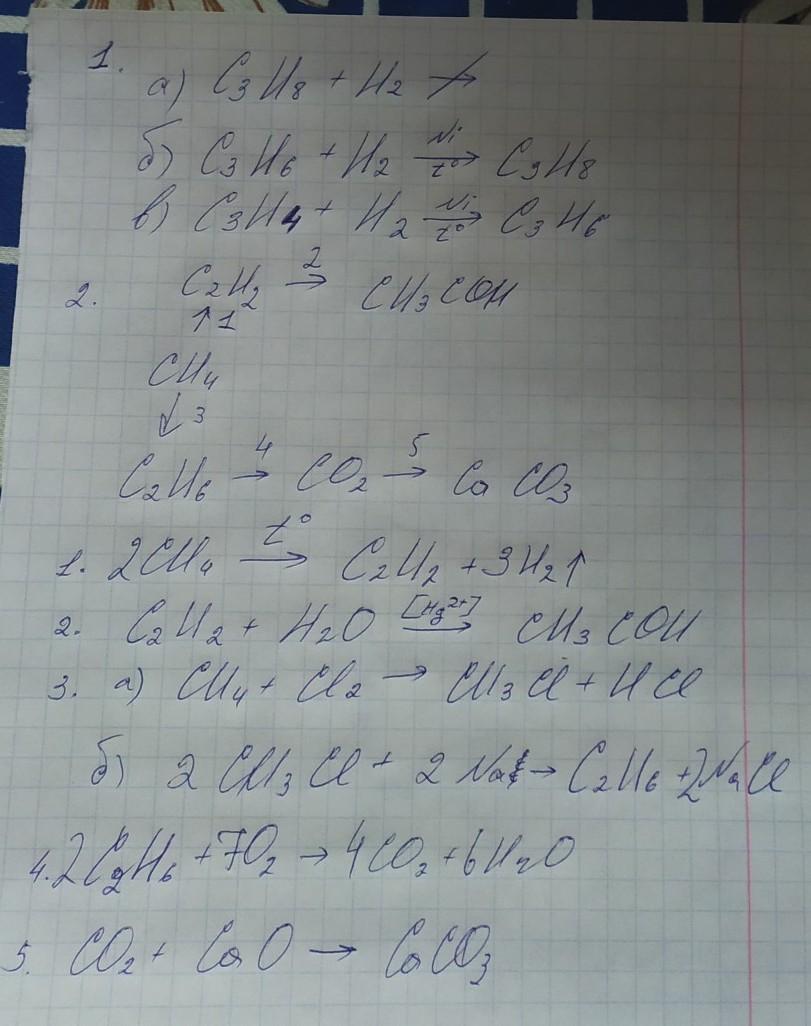 1. а) C₃H₈ + H₂ ↛
б) C₃H₆ + H₂ —Ni, t°→ C₃H₈
в) C₃H₄ + H₂ —Ni, t°→ C₃H₆
2. C₂H₂ —2→ CH₃COH
↑1
CH₄
↓3
C₂H₆ —4→ CO₂ —5→ CaCO₃
1. 2CH₄ —t°→ C₂H₂ + 3H₂↑
2. C₂H₂ + H₂O —[Hg²⁺]→ CH₃COH
3. а) CH₄ + Cl₂ → CH₃Cl + HCl
б) 2CH₃Cl + 2Na → C₂H₆ + 2NaCl
4. 2C₂H₆ + 7O₂ → 4CO₂ + 6H₂O
5. CO₂ + CaO → CaCO₃